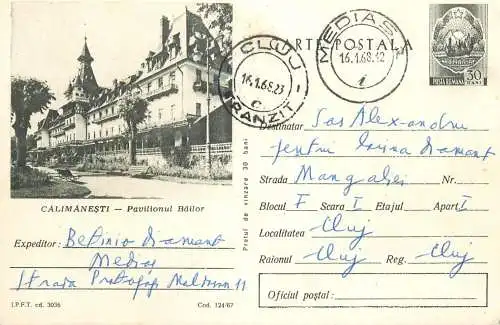 CARTE POSTALA
CLUJ
16.1.68.23
c
TRANZIT
MEDIAȘ
16.1.68.12
i
POSTA ROMANA 30 BANI
CĂLIMĂNEȘTI — Pavilionul Băilor
Expeditor: Diamant
Mediaș
Strada 11
I.P.F.T. cd. 3036
Cod. 124/67
Prețul de vînzare 30 bani
Destinatar Sas Alexandru
pentru Diamant
Strada Mangaliei Nr.
Blocul F Scara I Etajul Apart I
Localitatea Cluj
Raionul Cluj Reg. Cluj
Oficiul poștal: